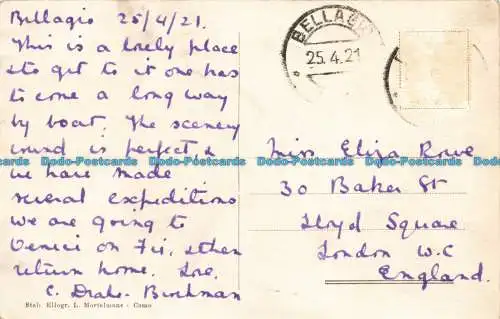 Bellagio 25/4/21.
This is a lovely place
& to get to it one has
to come a long way
by boat. The scenery
round is perfect &
we have made
several expeditions
we are going to
Venice on Fri, & then
return home. Love.
C. Drake-Brockman
Stab. Eliogr. L. Mortelmans - Como
BELLAGIO
25.4.21
Miss Eliza Rowe
30 Baker St
Lloyd Square
London W.C
England.
Dodo-Postcards Dodo-Postcards Dodo-Postcards Dodo-Postcards Dodo-Postcards